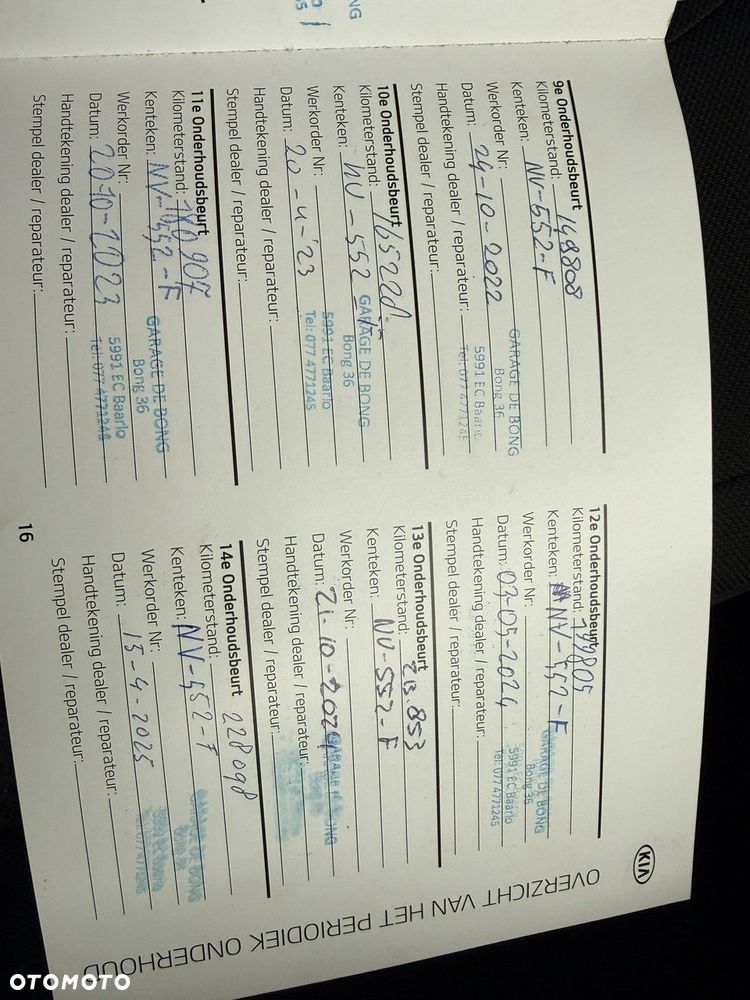 OVERZICHT VAN HET PERIODIEK ONDERHOUD
KIA
9e Onderhoudsbeurt
Kilometerstand: 149808
Kenteken: NV-552-F
Werkorder Nr:
Datum: 24-10-2022
Handtekening dealer / reparateur:
Stempel dealer / reparateur:
GARAGE DE BONG
Bong 36
5991 EC Baarlo
Tel: 077 4771245
10e Onderhoudsbeurt
Kilometerstand: 165228
Kenteken: NV-552-F
Werkorder Nr:
Datum: 20-4-'23
Handtekening dealer / reparateur:
Stempel dealer / reparateur:
GARAGE DE BONG
Bong 36
5991 EC Baarlo
Tel: 077 4771245
11e Onderhoudsbeurt
Kilometerstand: 180907
Kenteken: NV-552-F
Werkorder Nr:
Datum: 20-10-2023
Handtekening dealer / reparateur:
Stempel dealer / reparateur:
GARAGE DE BONG
Bong 36
5991 EC Baarlo
Tel: 077 4771245
12e Onderhoudsbeurt
Kilometerstand: 199805
Kenteken: NV-552-F
Werkorder Nr:
Datum: 03-05-2024
Handtekening dealer / reparateur:
Stempel dealer / reparateur:
GARAGE DE BONG
Bong 36
5991 EC Baarlo
Tel: 077 4771245
13e Onderhoudsbeurt
Kilometerstand: 213.853
Kenteken: NV-552-F
Werkorder Nr:
Datum: 21-10-2024
Handtekening dealer / reparateur:
Stempel dealer / reparateur:
GARAGE DE BONG
14e Onderhoudsbeurt
Kilometerstand: 228098
Kenteken: NV-552-F
Werkorder Nr:
Datum: 15-4-2025
Handtekening dealer / reparateur:
Stempel dealer / reparateur:
GARAGE DE BONG
16
OTOMOTO